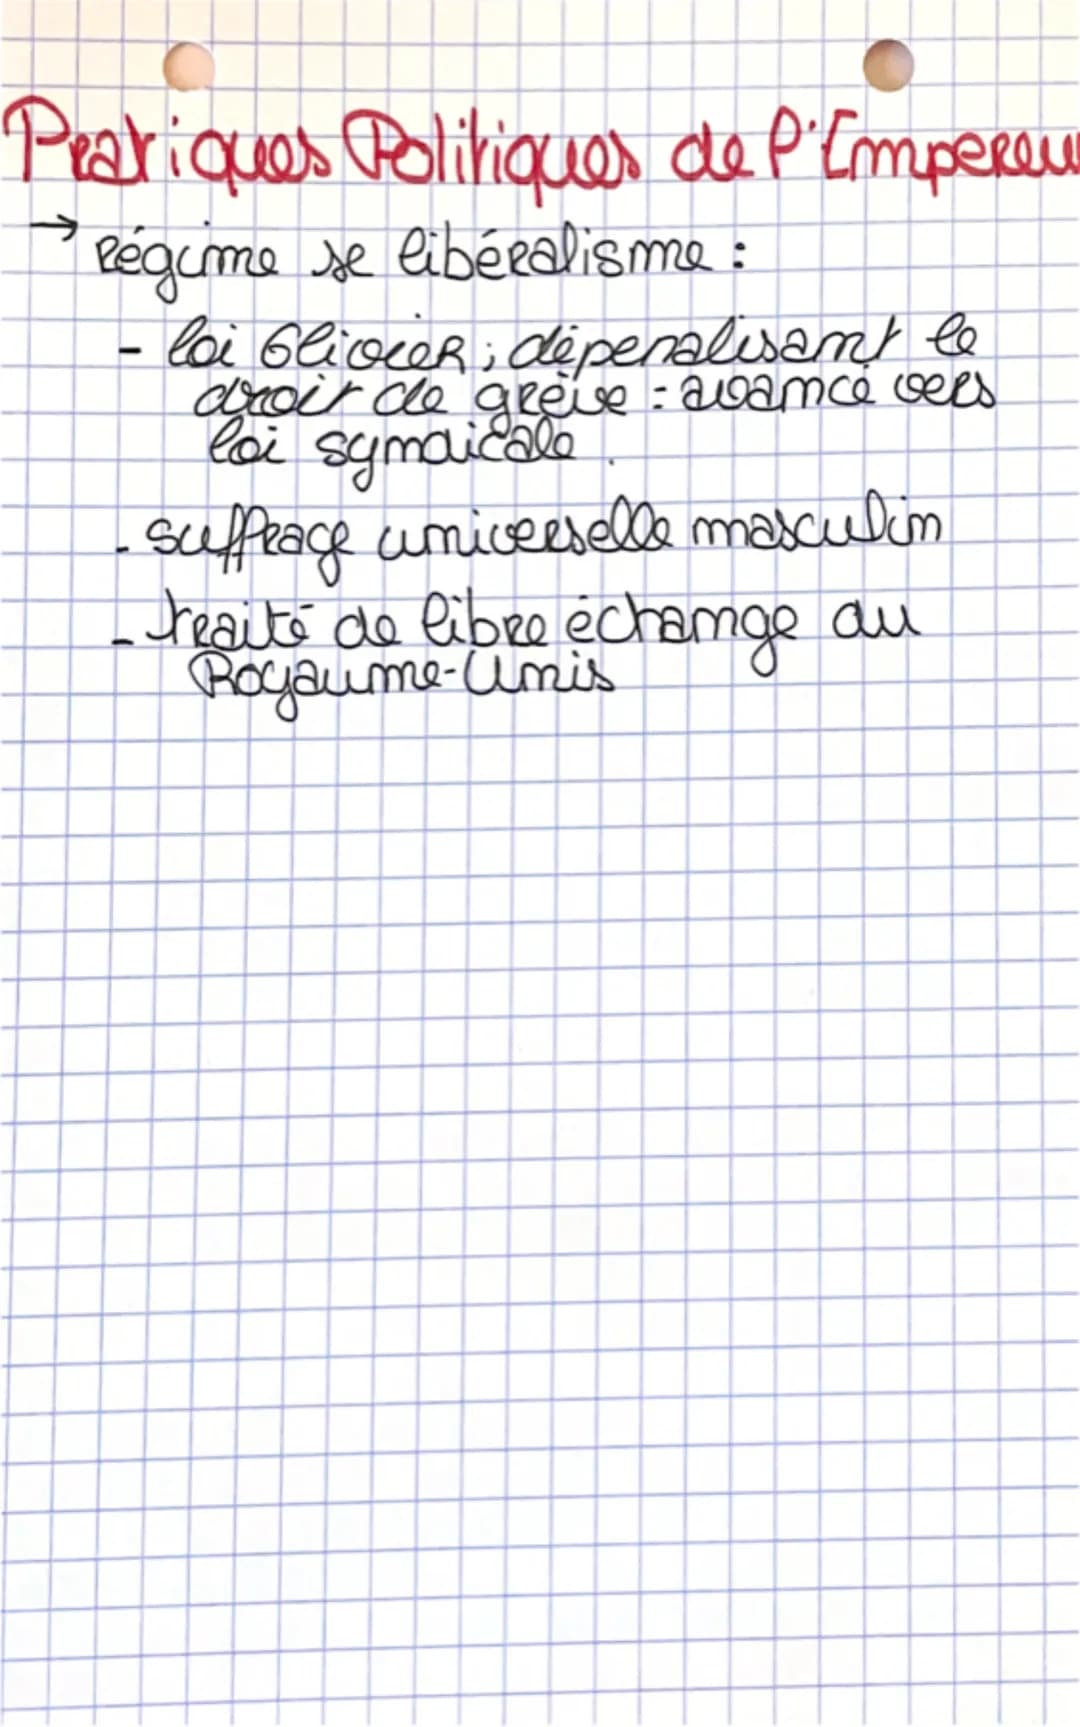 Pratiques Politiques de l'Empereur
→ Régime se libéralisme :
- loi Olivier ; dépenalisant le
droit de grève = avancé vers
loi syndicale.
- suffrage universelle masculin
- traité de libre échange au
Royaume-Unis